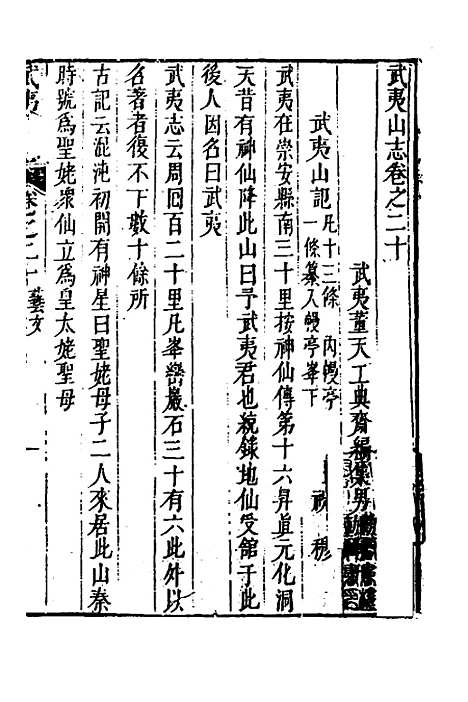 武夷山志卷之二十
武夷董天工典齋編集男
武夷山記凡十三條內幔亭
一條纂入幔亭峯下 祝穆
武夷在崇安縣南三十里按神仙傳第十六昇眞元化洞
天昔有神仙降此山曰予武夷君也統錄地仙受館于此
後人因名曰武夷
武夷志云周囘百二十里凡峯巒巖石三十有六此外以
名著者復不下數十餘所
古記云混沌初開有神星曰聖姥母子二人來居此山秦
時號爲聖姥衆仙立爲皇太姥聖母
武夷 卷之二十藝文 一